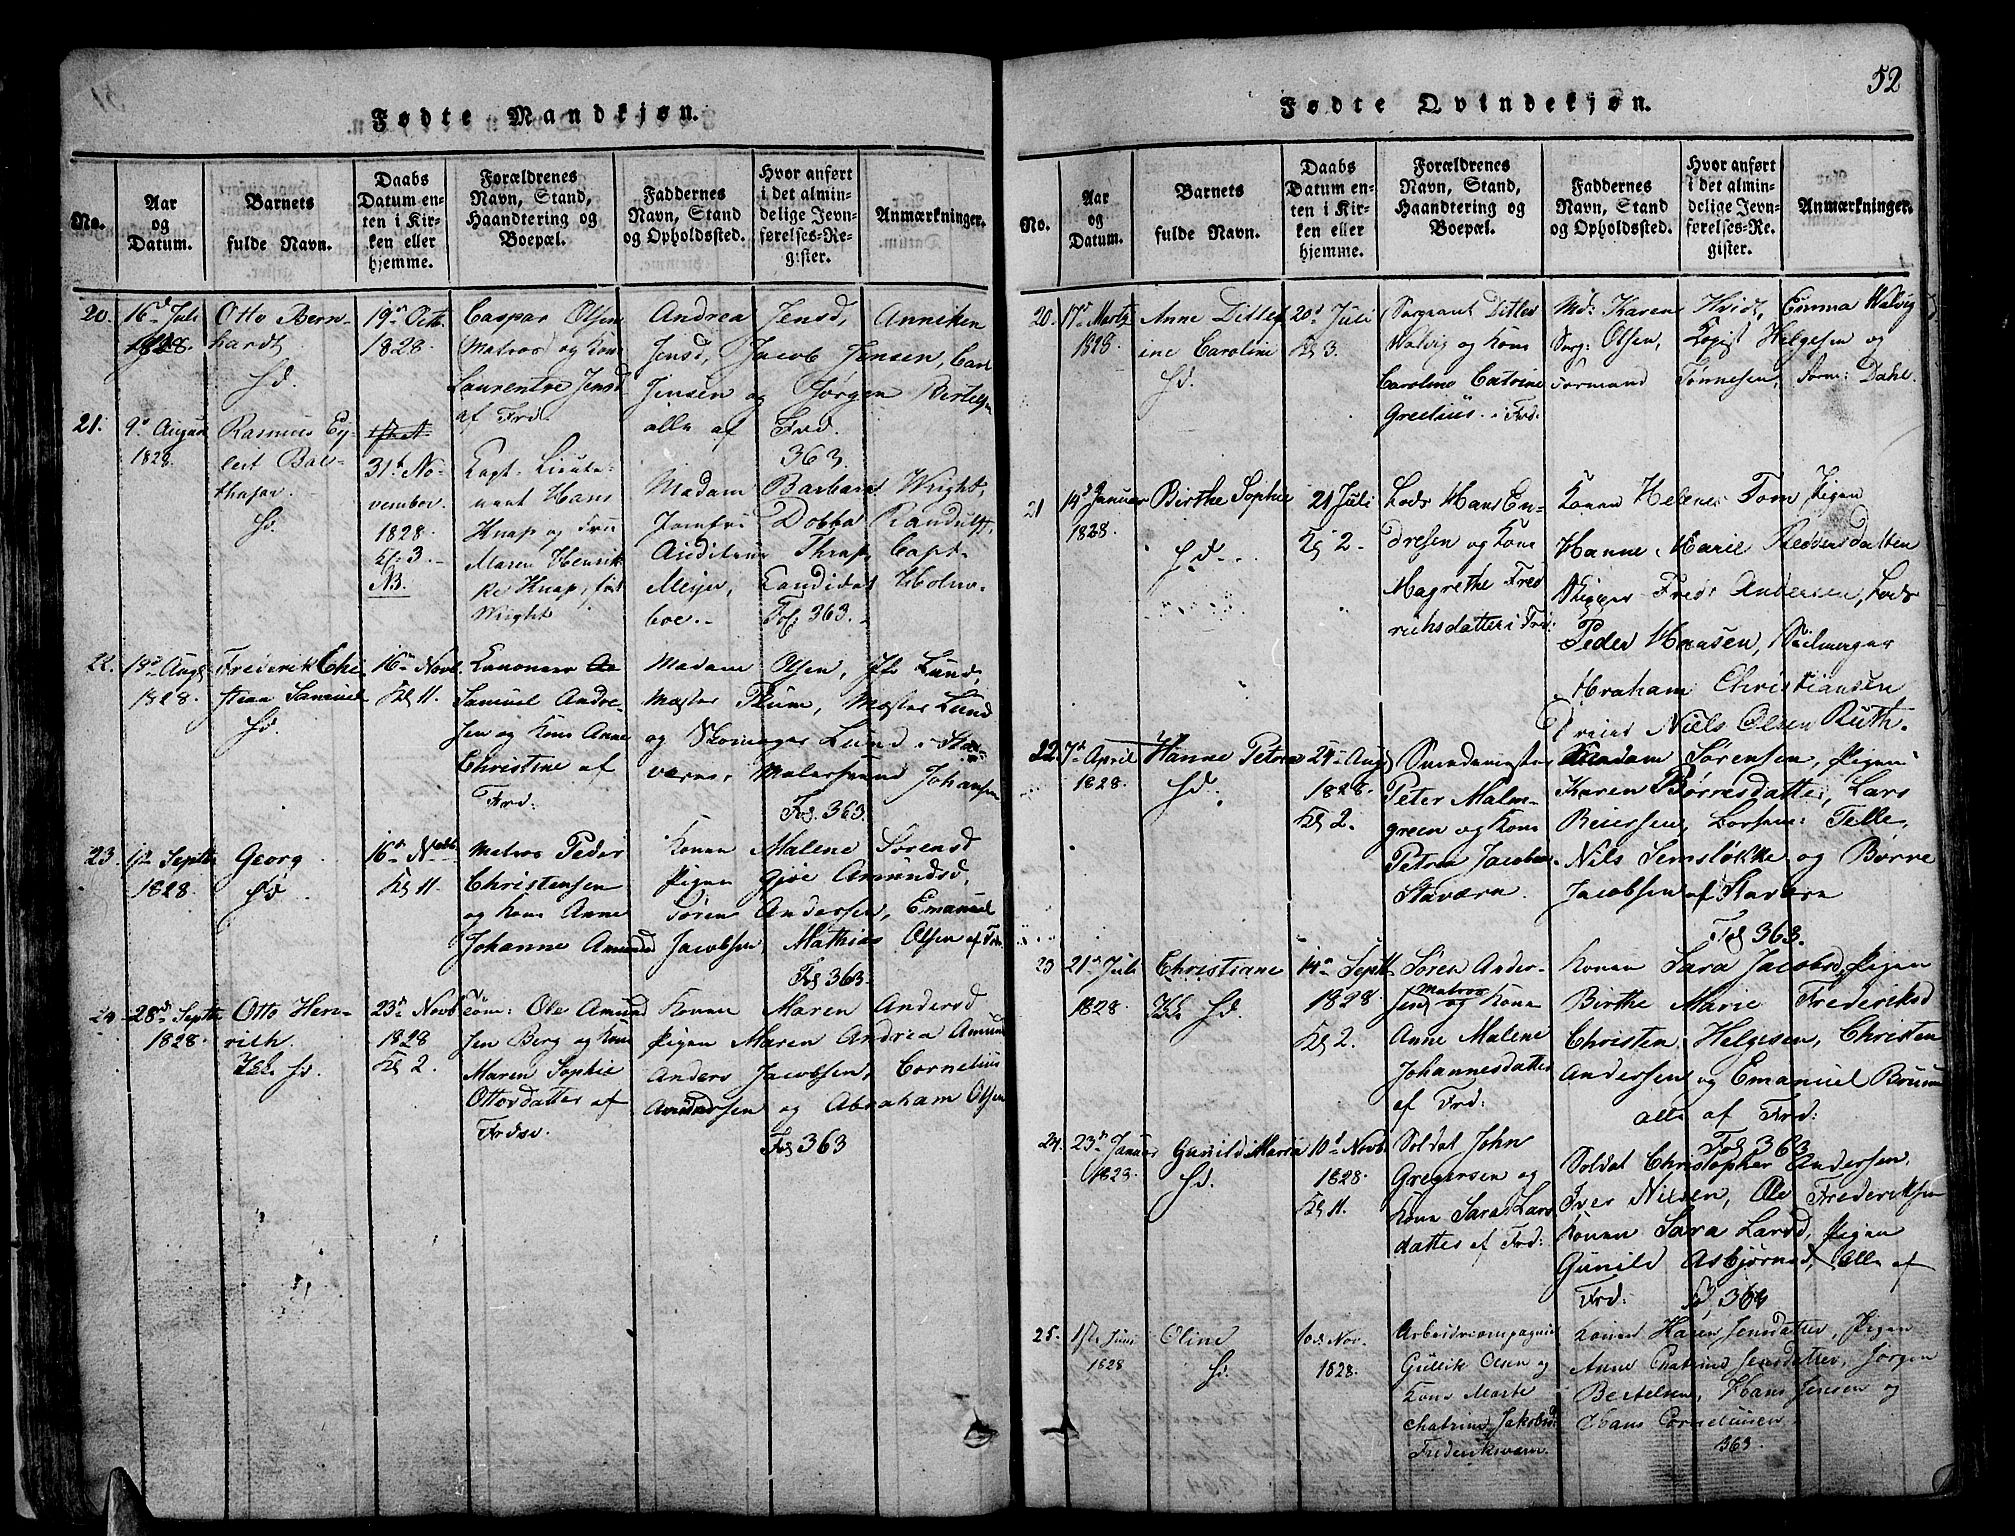 Fødte Mandkjøn.
No.
Aar
og
Datum.
Barnets
fulde Navn.
Daabs
Datum en-
ten i Kir-
ken eller
hjemme.
Forældrenes
Navn, Stand,
Haandtering og
Boepæl.
Faddernes
Navn, Stand
og Opholdssted.
Hvor anført
i det almin-
delige Jevn-
førelses-Re-
gister.
Anmærkninger.
20.
16d Juli
1828.
Otto Bern-
hardt
Hd.
19d Octb.
1828.
Caspar Olsen
Matros og Kone
Laurentse Jensd
af Frd.
Andrea Jensd, Anniken
Jensd, Jacob Jensen, Carl
Jensen og Jørgen Bertelsen
alle af Frd.
363.
21.
9d August
1828.
Rasmus Ey-
lert Bal-
thasar.
Hd.
31d No-
vember
1828.
Kl. 3.
NB.
Capt. Lieute-
nant Hans
Knap og Frue
Maren Henrik-
ke Knap, født
Wright
Madam Barbara Wright,
Jomfru Dobba Randulff,
Auditeur Thrap, Capt.
Meyer, Candidat Holm-
boe.
Fol 363.
22.
19d Augs
1828.
Frederik Chri
stian Samuel
Hd.
16d Novb.
Kl 11.
Canoneer
Samuel Andre-
sen og Kone Anne
Christine af
Frd:
Madam Olsen, Lund,
Mester Thum, Mester Lund
og Skomager Lund i Sta-
værn, Malersvend Johansen
Fol 363.
23.
12 Septbr
1828.
Georg
Hd
16d Novb.
Kl 11.
Matros Peder
Christensen
og Kone Anne
Johanne Amundsd
Konen Malene Sørensd
Pigen Gjøe Amundsd,
Søren Andersen, Emanuel
Jacobsen, Mathias Olsen af Frd.
Fol 363.
24.
28d Septbr
1828.
Otto Hen-
rich
Hd.
23d Novb
1828
Kl 2.
Tøm: Ole Amund
sen Berg og Kone
Maren Sophie
Ottosdatter af
Frdsv.
Konen Maren Andersd
Pigen Maren Andrea Amund
Anders Jacobsen, Cornelius
Amundsen og Abraham Olsen
Fol 363
52
Fødte Qvindekjøn.
No.
Aar
og
Datum.
Barnets
fulde Navn.
Daabs
Datum en-
ten i Kir-
ken eller
hjemme.
Forældrenes
Navn, Stand,
Haandtering og
Boepæl.
Faddernes
Navn, Stand
og Opholdssted.
Hvor anført
i det almin-
delige Jevn-
førelses-Re-
gister.
Anmærkninger.
20.
17d Martz
1828.
Anne Ditlef
ine Caroline
Hd.
20d Juli
Kl 3.
Sergeant Ditlev
Walvig og Kone
Caroline Catrine
Greelius i Frd.
Md: Karen Hvidt, Emma Walvig
Serg: Olsen, Copist Helgesen og
Formand Tønnesen, Form: Dahl.
21
14d Januar
1828.
Birthe Sophie
Hd.
21 Juli
Kl 2.
Lods Hans En-
dresen og Kone
Magrethe Fred
richsdatter i Frd:
Konen Helene Tom Pigen
Hanne Marie Reddersdatter
Skipper Fred: Andersen, Lods
Peder Hansen, Seilmager
Abraham Christiansen
Niels Olsen Ruth.
22.
7d April
1828.
Hanne Petrea
Hd.
24d Aug
1828.
Kl 2.
Smedemester
Peter Malm-
green og Kone
Petrea Jacobsen
Staværn.
Madam Sørensen, Pigen
Karen Børresdatter, Lars
Beiersen, Corson: Telle,
Nils Semsløkke og Børre
Jacobsen af Stavern
Fol 363.
23
21d Juli
1828.
Christiane
Hd.
14d Septb.
1828.
Kl 2.
Søren Ander-
sen Matros og Kone
Anne Malene
Johannesdatter
af Frd:
Konen Sara Jacobsd, Pigen
Birthe Marie Frederiksd
Christen Helgesen, Christen
Andersen og Emanuel Bruun
alle af Frd:
Fol 363
24.
23d Januar
1828.
Gunild Maria
Hd.
10d Novb.
1828.
Kl 11.
Soldat John
Gregersen og
Kone Sara Lars
datter af Frd:
Soldat Christopher Andersen,
Iver Nielsen, Ole Frederiksen
Konen Sara Larsd, Pigen
Gunild Asbjørnsd, Alle af
Frd:
Fol 364
25.
1/2 Juni
1828
Oline
Hd.
10d Nov.
1828.
Arbeidscompagnie
Gullik Olsen og
Kone Marte
Chatrine Jakobsd
Frederiksværn.
Konen Karen Jensdatter, Pigen
Anne Chatrine Jensdatter, Jørgen
Bertelsen, Hans Jensen og
Hans Corneliusen
363.